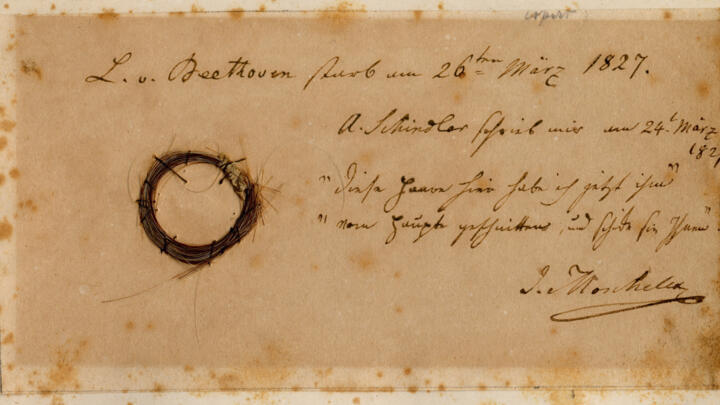 copirt
L. v. Beethoven starb am 26ten März 1827.
A. Schindler schrieb mir am 24t März
182
"Diese Haare hier habe ich jetzt ihm"
"vom Haupte geschnitten, und schicke sie Ihnen"
I. Moscheles